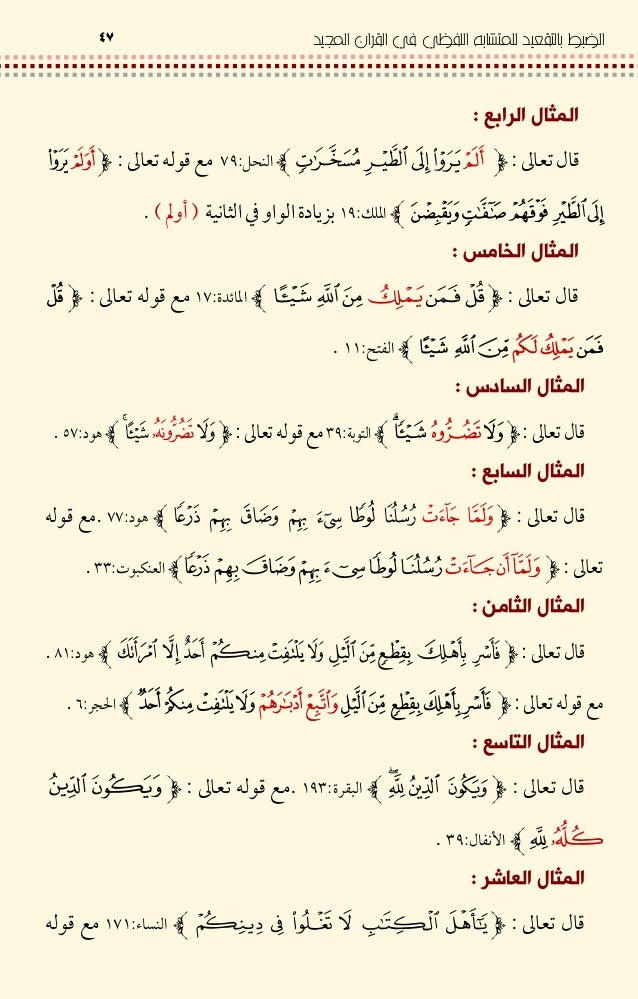 الضبط بالتقعيد للمتشابه اللفظي في القرآن المجيد ٤٧
المثال الرابع :
قال تعالى : ﴿ أَلَمْ يَرَوْا۟ إِلَى ٱلطَّيْرِ مُسَخَّرَٰتٍ ﴾ النحل:٧٩ مع قوله تعالى : ﴿ أَوَلَمْ يَرَوْا۟
إِلَى ٱلطَّيْرِ فَوْقَهُمْ صَٰٓفَّٰتٍ وَيَقْبِضْنَ ﴾ الملك:١٩ بزيادة الواو في الثانية ( أولم ) .
المثال الخامس :
قال تعالى : ﴿ قُلْ فَمَن يَمْلِكُ مِنَ ٱللَّهِ شَيْـًٔا ﴾ المائدة:١٧ مع قوله تعالى : ﴿ قُلْ
فَمَن يَمْلِكُ لَكُم مِّنَ ٱللَّهِ شَيْـًٔا ﴾ الفتح:١١ .
المثال السادس :
قال تعالى : ﴿ وَلَا تَضُرُّوهُ شَيْـًٔا ۗ ﴾ التوبة:٣٩ مع قوله تعالى : ﴿ وَلَا تَضُرُّونَهُۥ شَيْـًٔا ۚ ﴾ هود:٥٧ .
المثال السابع :
قال تعالى : ﴿ وَلَمَّا جَآءَتْ رُسُلُنَا لُوطًا سِىٓءَ بِهِمْ وَضَاقَ بِهِمْ ذَرْعًا ﴾ هود:٧٧ .مع قوله
تعالى : ﴿ وَلَمَّآ أَن جَآءَتْ رُسُلُنَا لُوطًا سِىٓءَ بِهِمْ وَضَاقَ بِهِمْ ذَرْعًا ﴾ العنكبوت:٣٣ .
المثال الثامن :
قال تعالى : ﴿ فَأَسْرِ بِأَهْلِكَ بِقِطْعٍ مِّنَ ٱلَّيْلِ وَلَا يَلْتَفِتْ مِنكُمْ أَحَدٌ إِلَّا ٱمْرَأَتَكَ ﴾ هود:٨١ .
مع قوله تعالى : ﴿ فَأَسْرِ بِأَهْلِكَ بِقِطْعٍ مِّنَ ٱلَّيْلِ وَٱتَّبِعْ أَدْبَٰرَهُمْ وَلَا يَلْتَفِتْ مِنكُمْ أَحَدٌ ﴾ الحجر:٦ .
المثال التاسع :
قال تعالى : ﴿ وَيَكُونَ ٱلدِّينُ لِلَّهِ ۖ ﴾ البقرة:١٩٣ .مع قوله تعالى : ﴿ وَيَكُونَ ٱلدِّينُ
كُلُّهُۥ لِلَّهِ ﴾ الأنفال:٣٩ .
المثال العاشر :
قال تعالى : ﴿ يَٰٓأَهْلَ ٱلْكِتَٰبِ لَا تَغْلُوا۟ فِى دِينِكُمْ ﴾ النساء:١٧١ مع قوله